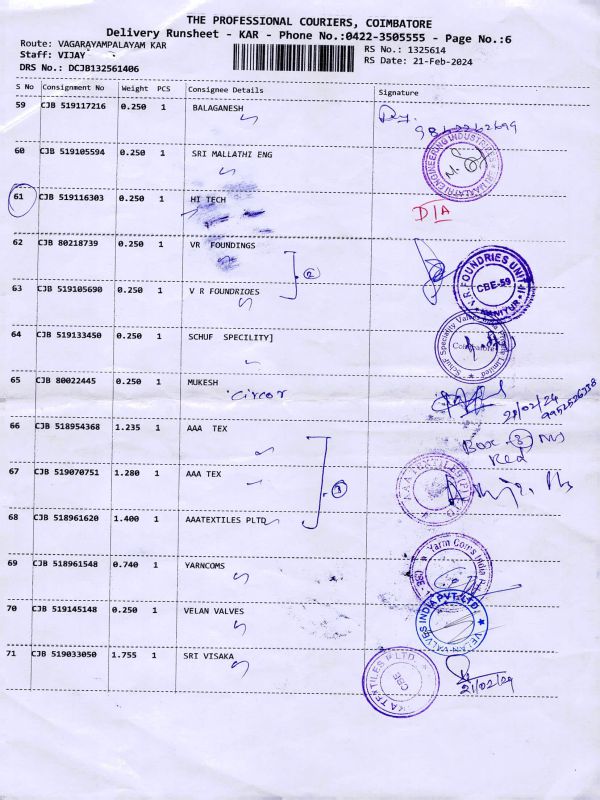 THE PROFESSIONAL COURIERS, COIMBATORE
Delivery Runsheet - KAR - Phone No.:0422-3505555 - Page No.:6
Route: VAGARAYAMPALAYAM KAR
RS No.: 1325614
Staff: VIJAY
RS Date: 21-Feb-2024
DRS No.: DCJB132561406
S No Consignment No Weight PCS Consignee Details Signature
59 CJB 519117216 0.250 1 BALAGANESH
60 CJB 519105594 0.250 1 SRI MALLATHI ENG
61 CJB 519116303 0.250 1 HI TECH D/A
62 CJB 80218739 0.250 1 VR FOUNDINGS
2
V R FOUNDRIES UNIT
CBE-59
63 CJB 519105690 0.250 1 V R FOUNDRIOES
64 CJB 519133450 0.250 1 SCHUF SPECILITY]
65 CJB 80022445 0.250 1 MUKESH
Circor
21/02/24
66 CJB 518954368 1.235 1 AAA TEX
Box 3 Nos
Red
67 CJB 519070751 1.280 1 AAA TEX
3
68 CJB 518961620 1.400 1 AAATEXTILES PLTD
69 CJB 518961548 0.740 1 YARNCOMS
Yarn Coms India
70 CJB 519145148 0.250 1 VELAN VALVES
71 CJB 519033050 1.755 1 SRI VISAKA
CBE
21/02/24